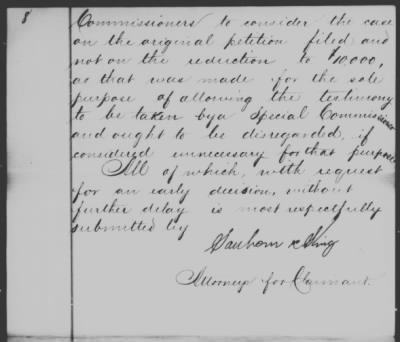 8
Commissioners to consider the case
on the original petition filed and
not on the reduction to $10,000,
as that was made for the sole
purpose of allowing the testimony
to be taken by a Special Commissioner
and ought to be disregarded, if
considered unnecessary for that purpose
All of which, with request
for an early decision, without
further delay is most respectfully
submitted by
Sanborn & King
Attorneys for Claimant.